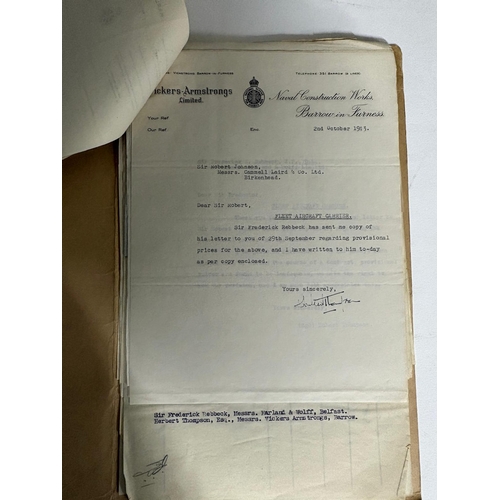 Vickers-Armstrongs
Limited.
Naval Construction Works,
Barrow-in-Furness.
Your Ref
Our Ref
2nd October 1943.
Sir Robert Johnson,
Messrs. Cammell Laird & Co. Ltd.
Birkenhead.
Dear Sir Robert,
FLEET AIRCRAFT CARRIER.
Sir Frederick Rebbeck has sent me copy
of his letter to you of 29th September regarding provisional
prices for the above, and I have written to him to-day
as per copy enclosed.
Yours sincerely,
Sir Frederick Rebbeck, Messrs. Harland & Wolff, Belfast.
Herbert Thompson, Esq., Messrs. Vickers Armstrongs, Barrow.